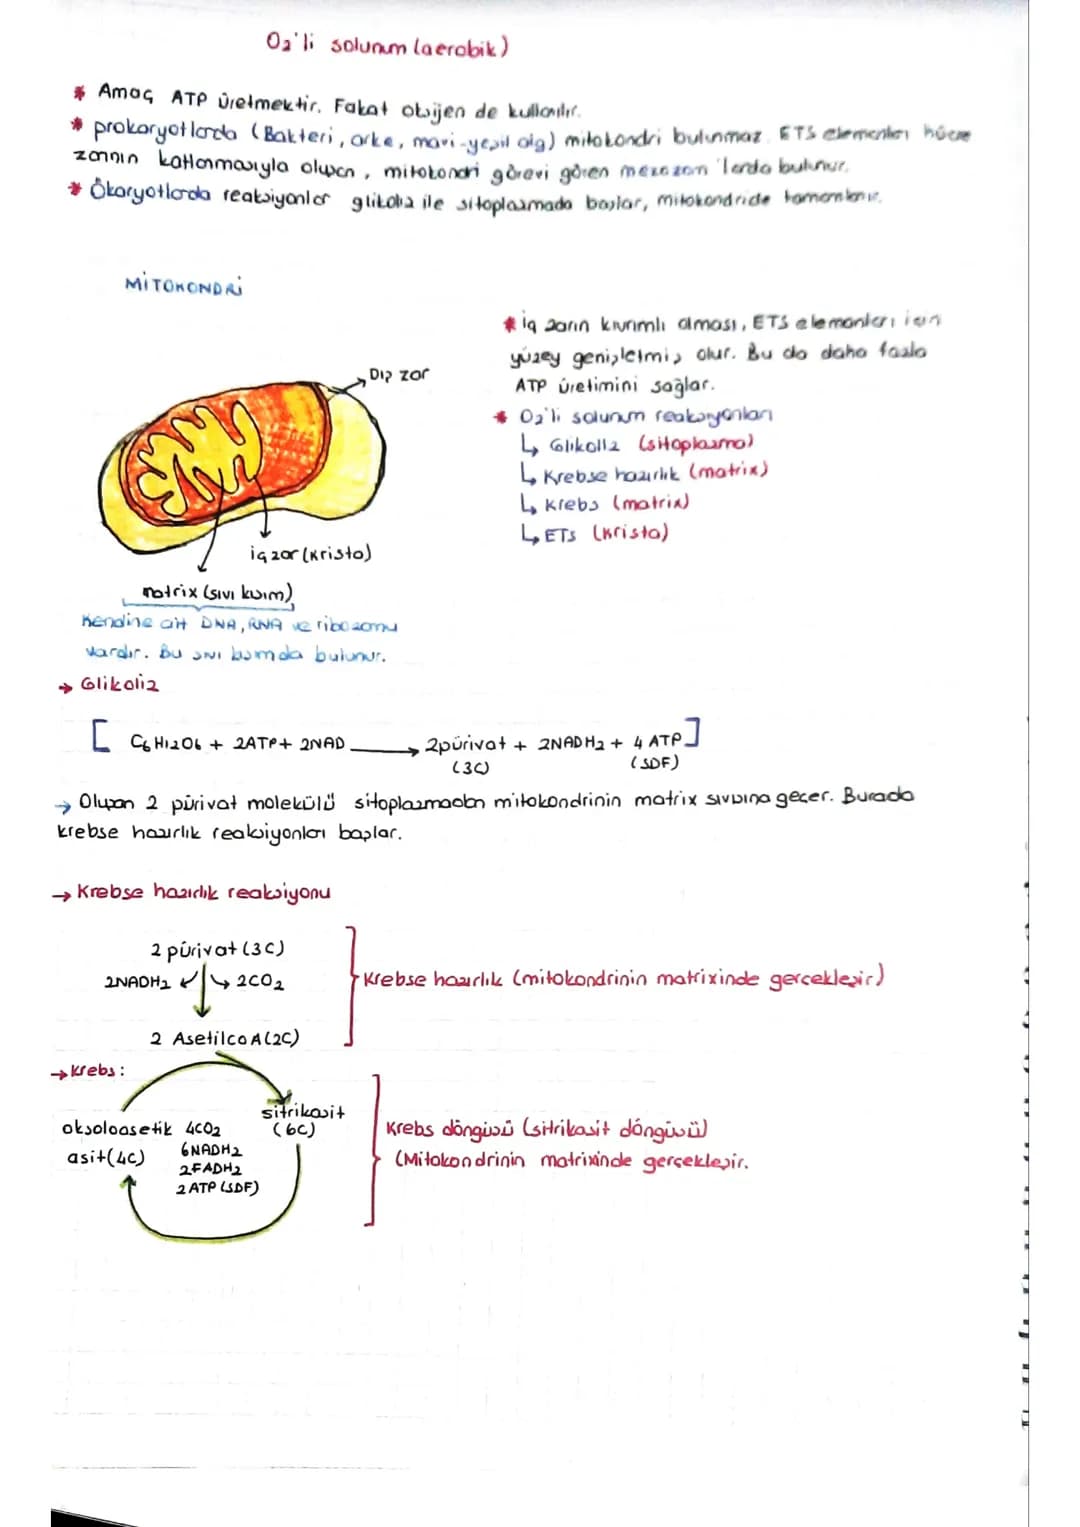 O₂'li solunum (aerobik)
* Amaç ATP üretmektir. Fakat oksijen de kullanılır.
* prokaryotlarda (Bakteri, arke, mavi-yeşil alg) mitokondri bulunmaz. ETS elemanları hücre
zarının katlanmasıyla oluşan, mitokondri görevi gören mezozom'larda bulunur.
* Ökaryotlarda reaksiyonlar glikoliz ile sitoplazmada başlar, mitokondride tamamlanır.
MİTOKONDRİ
* iç zarın kıvrımlı olması, ETS elemanları için
yüzey genişletmiş olur. Bu da daha fazla
ATP üretimini sağlar.
* O₂'li solunum reaksiyonları
↳ Glikoliz (sitoplazma)
↳ Krebse hazırlık (matrix)
↳ Krebs (matrix)
↳ ETS (Krista)
Dış zar
iç zar (Krista)
matrix (sıvı kısım)
Kendine ait DNA, RNA ve ribozomu
vardır. Bu sıvı kısımda bulunur.
→ Glikoliz
[ C₆H₁₂O₆ + 2ATP + 2NAD → 2pürivat + 2NADH₂ + 4 ATP ]
(3C) (SDF)
→ Oluşan 2 pürivat molekülü sitoplazmadan mitokondrinin matrix sıvısına geçer. Burada
krebse hazırlık reaksiyonları başlar.
→ Krebse hazırlık reaksiyonu
2 pürivat (3C)
2NADH₂ 2CO₂
2 AsetilcoA (2C)
Krebse hazırlık (mitokondrinin matrixinde gerçekleşir)
→ Krebs:
sitrikasit
(6C)
oksoloasetik
asit (4C)
4CO₂
6NADH₂
2FADH₂
2 ATP (SDF)
Krebs döngüsü (sitrikasit döngüsü)
(Mitokondrinin matrixinde gerçekleşir.